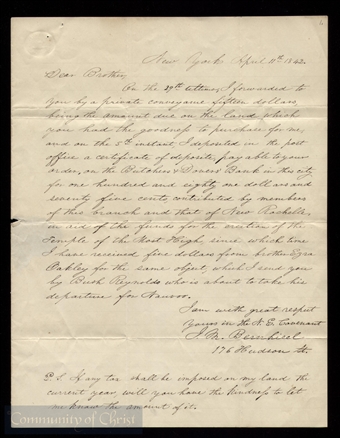 New York April 11th 1842.
Dear Brother,
On the 29th ultimo, I forwarded to
you by a private conveyance fifteen dollars,
being the amount due on the land which
you had the goodness to purchase for me,
and on the 5th instant, I deposited in the post
office a certificate of deposite, payable to your
order, on the Butchers & Drovers Bank in this city,
for one hundred and eighty one dollars and
seventy five cents contributed by members
of this branch and that of New Rochelle,
in aid of the funds for the erection of the
Temple of the Most High, since which time
I have received five dollars from brother Ezra
Oakley for the same object, which I send you
by Bish Reynolds who is about to take his
departure for Nauvoo.
I am with great respect
yours in the N. E. Covenant
J. M. Bernhisel
176 Hudson St.
P.S. If any tax shall be imposed on my land the
current year, will you have the kindness to let
me know the amount of it.
Community of Christ